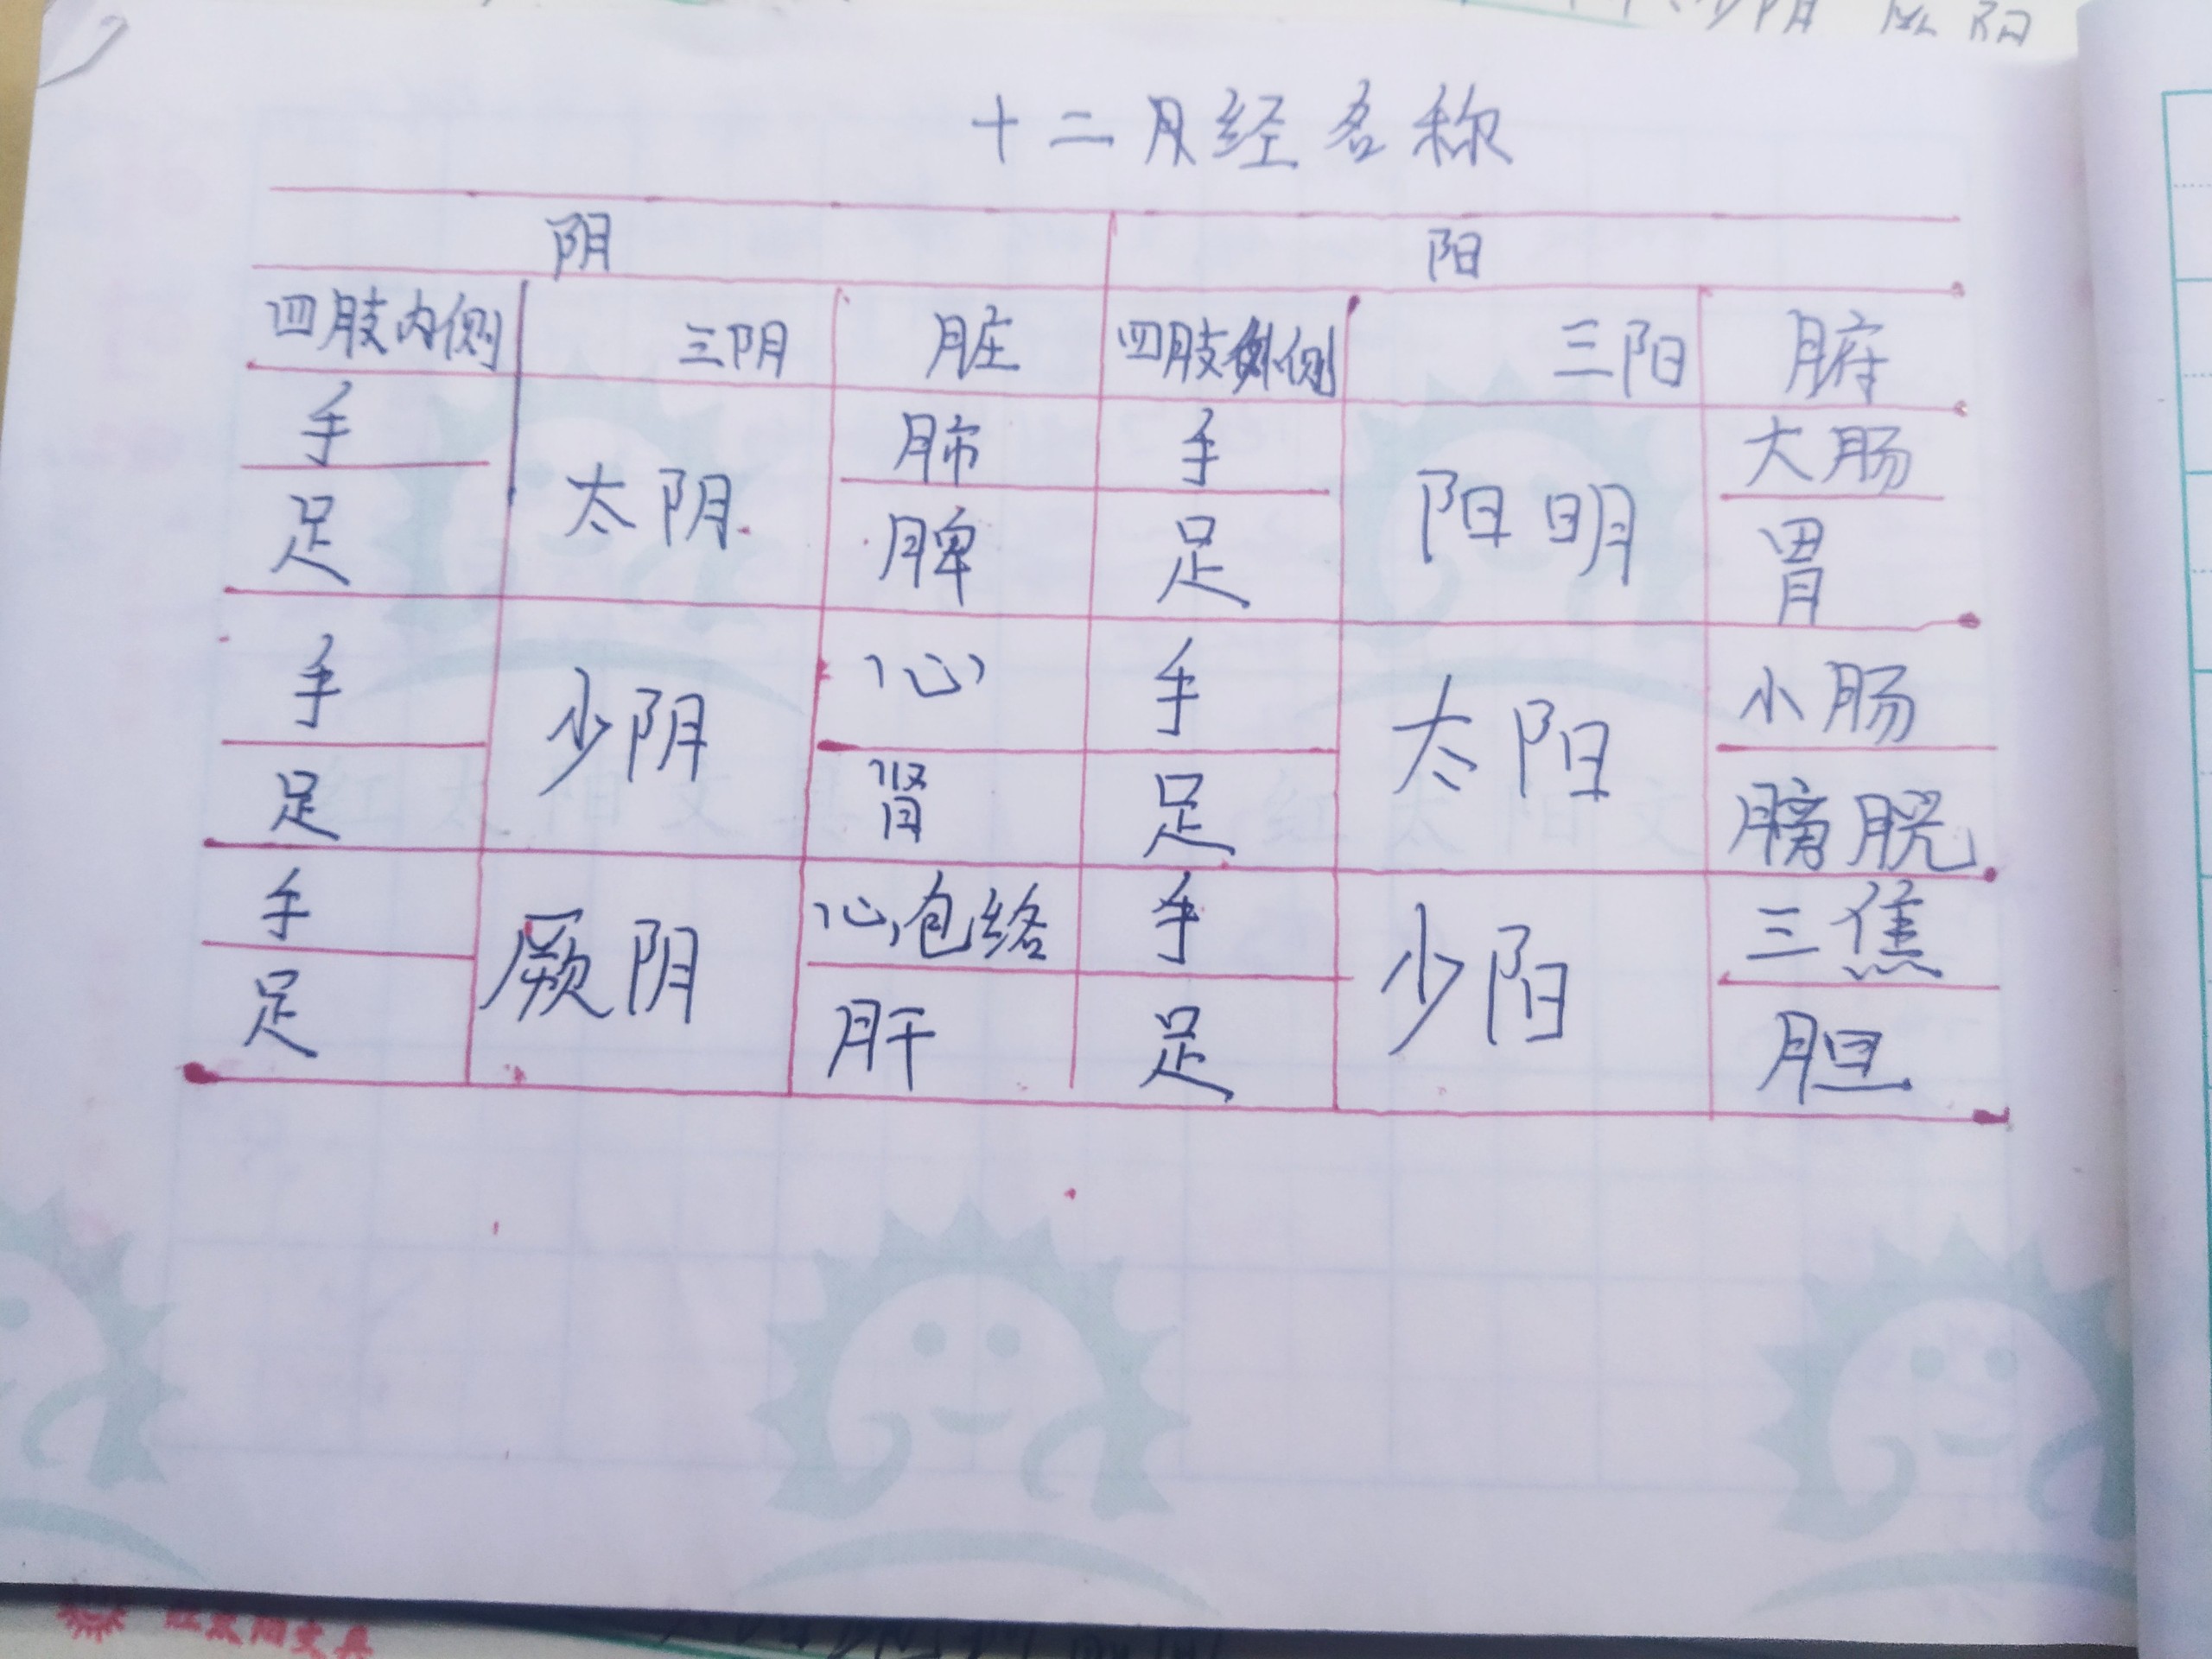 十二月经名称
阴 阳
四肢内侧 三阴 脏 四肢外侧 三阳 腑
手 太阴 肺 手 阳明 大肠
足 脾 足 胃
手 少阴 心 手 太阳 小肠
足 肾 足 膀胱
手 厥阴 心包络 手 少阳 三焦
足 肝 足 胆
红太阳文具
红太阳文
红太阳文具